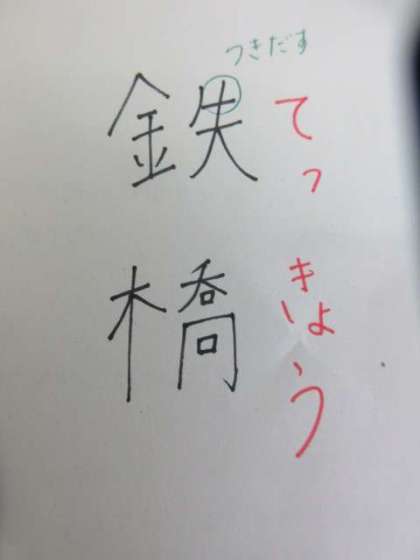 つきだす
鉄橋
てっきょう